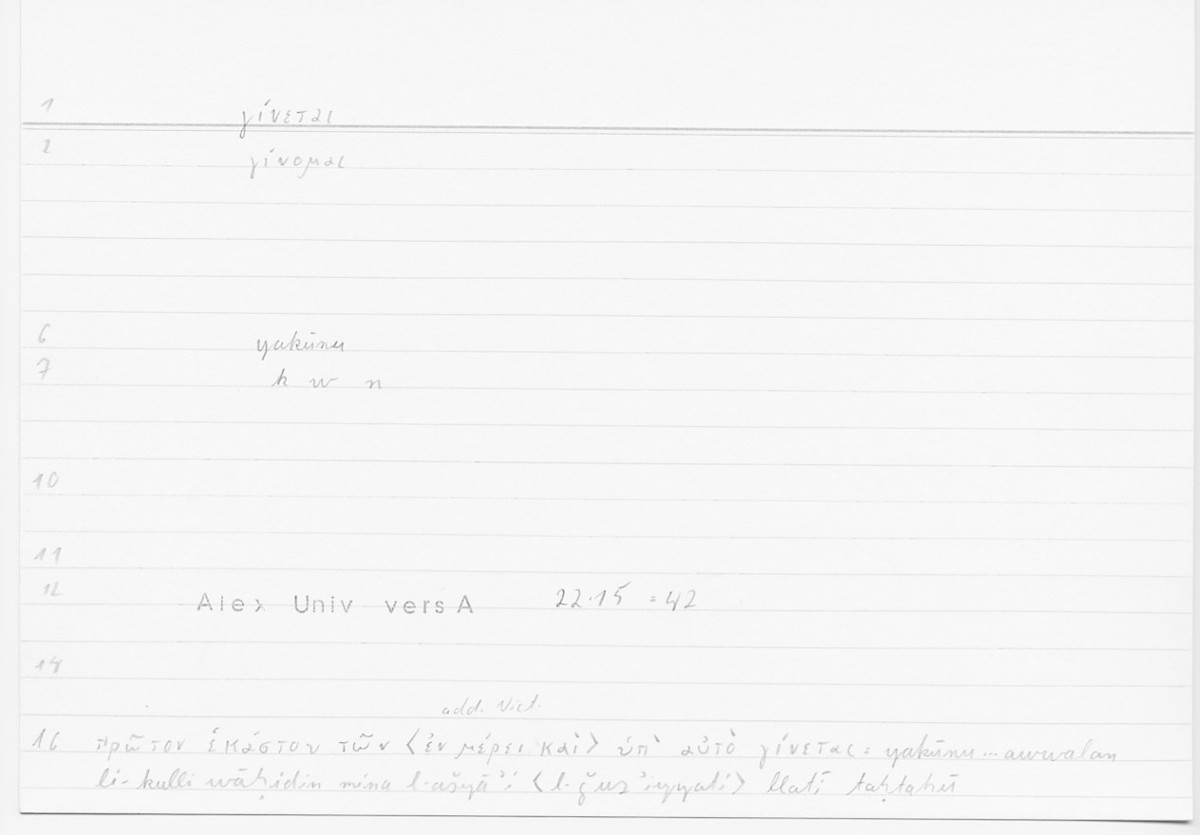 1 γίνεται
2 γίνομαι
6 yakūnu
7 k w n
10
11
12 Alex Univ vers A 22.15 = 42
14
add. Vict.
16 πρῶτον ἑκάστου τῶν ⟨ἐν μέρει καὶ⟩ ὑπ' αὐτὸ γίνεται = yakūnu ... awwalan
li-kulli wāḥidin mina l-ašyāʾi ⟨l-ǧuzʾiyyati⟩ llatī taḥtahū